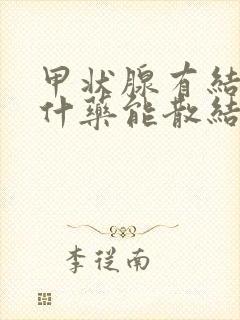 甲状腺有結
什藥能散結
李從南